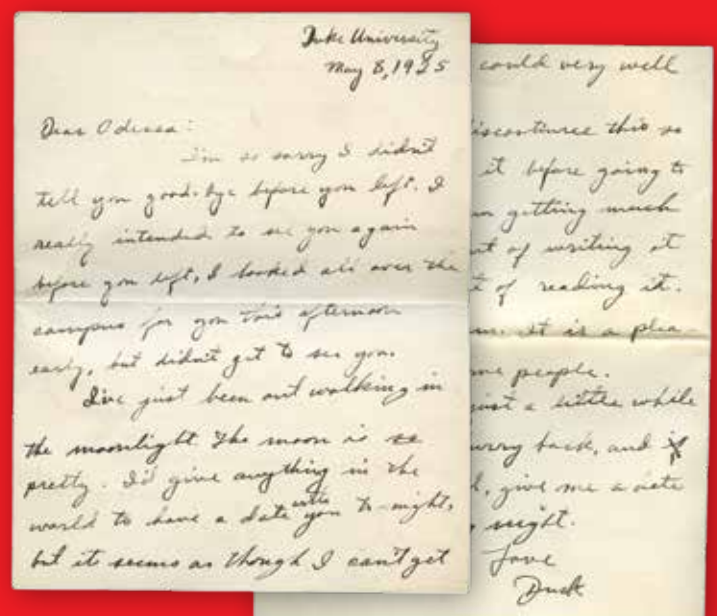 Duke University
May 8, 1925
Dear Odessa:
I'm so sorry I didn't
tell you good-bye before you left. I
really intended to see you again
before you left, I looked all over the
campus for you this afternoon
early, but didn't get to see you.
I've just been out walking in
the moonlight. The moon is so
pretty. I'd give anything in the
world to have a date with you to-night,
but it seems as though I can't get
could very well
discontinue this so
it before going to
getting much
of writing it
of reading it.
it is a plea-
people.
just a little while
hurry back, and if
, give me a date
night.
Love